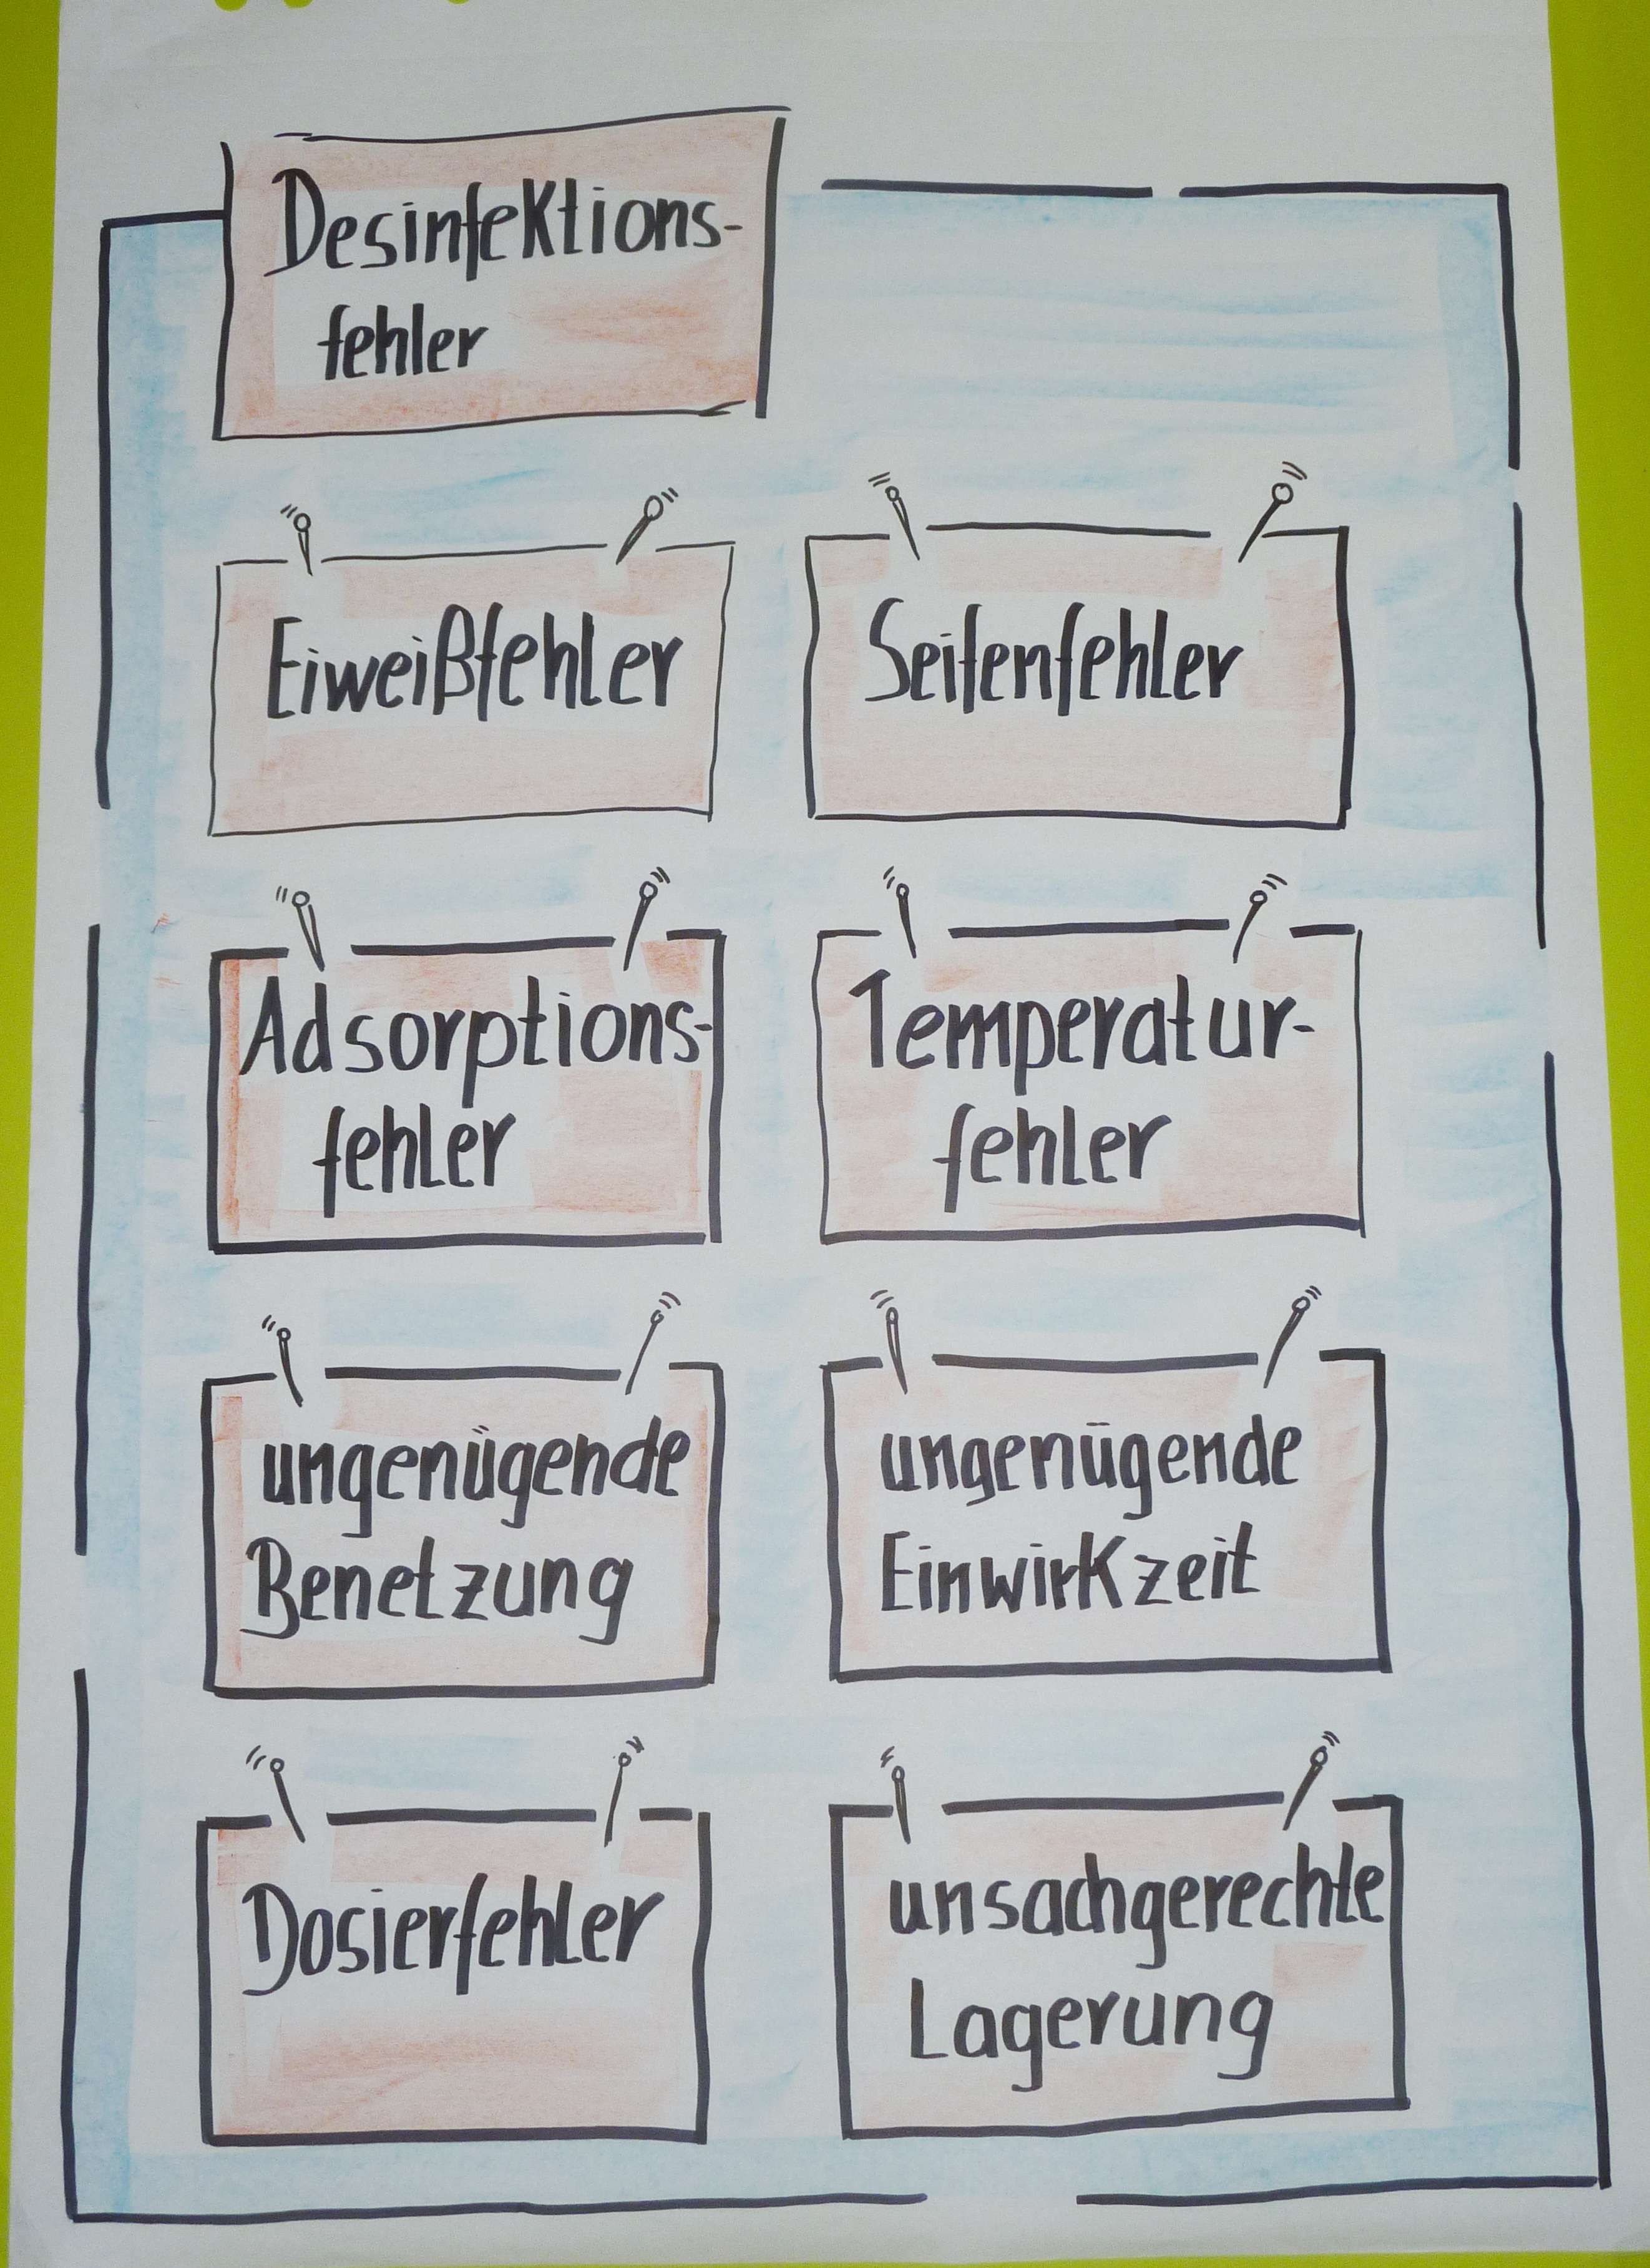 Desinfektions-
fehler
Eiweißfehler
Seifenfehler
Adsorptions-
fehler
Temperatur-
fehler
ungenügende
Benetzung
ungenügende
Einwirkzeit
Dosierfehler
unsachgerechte
Lagerung